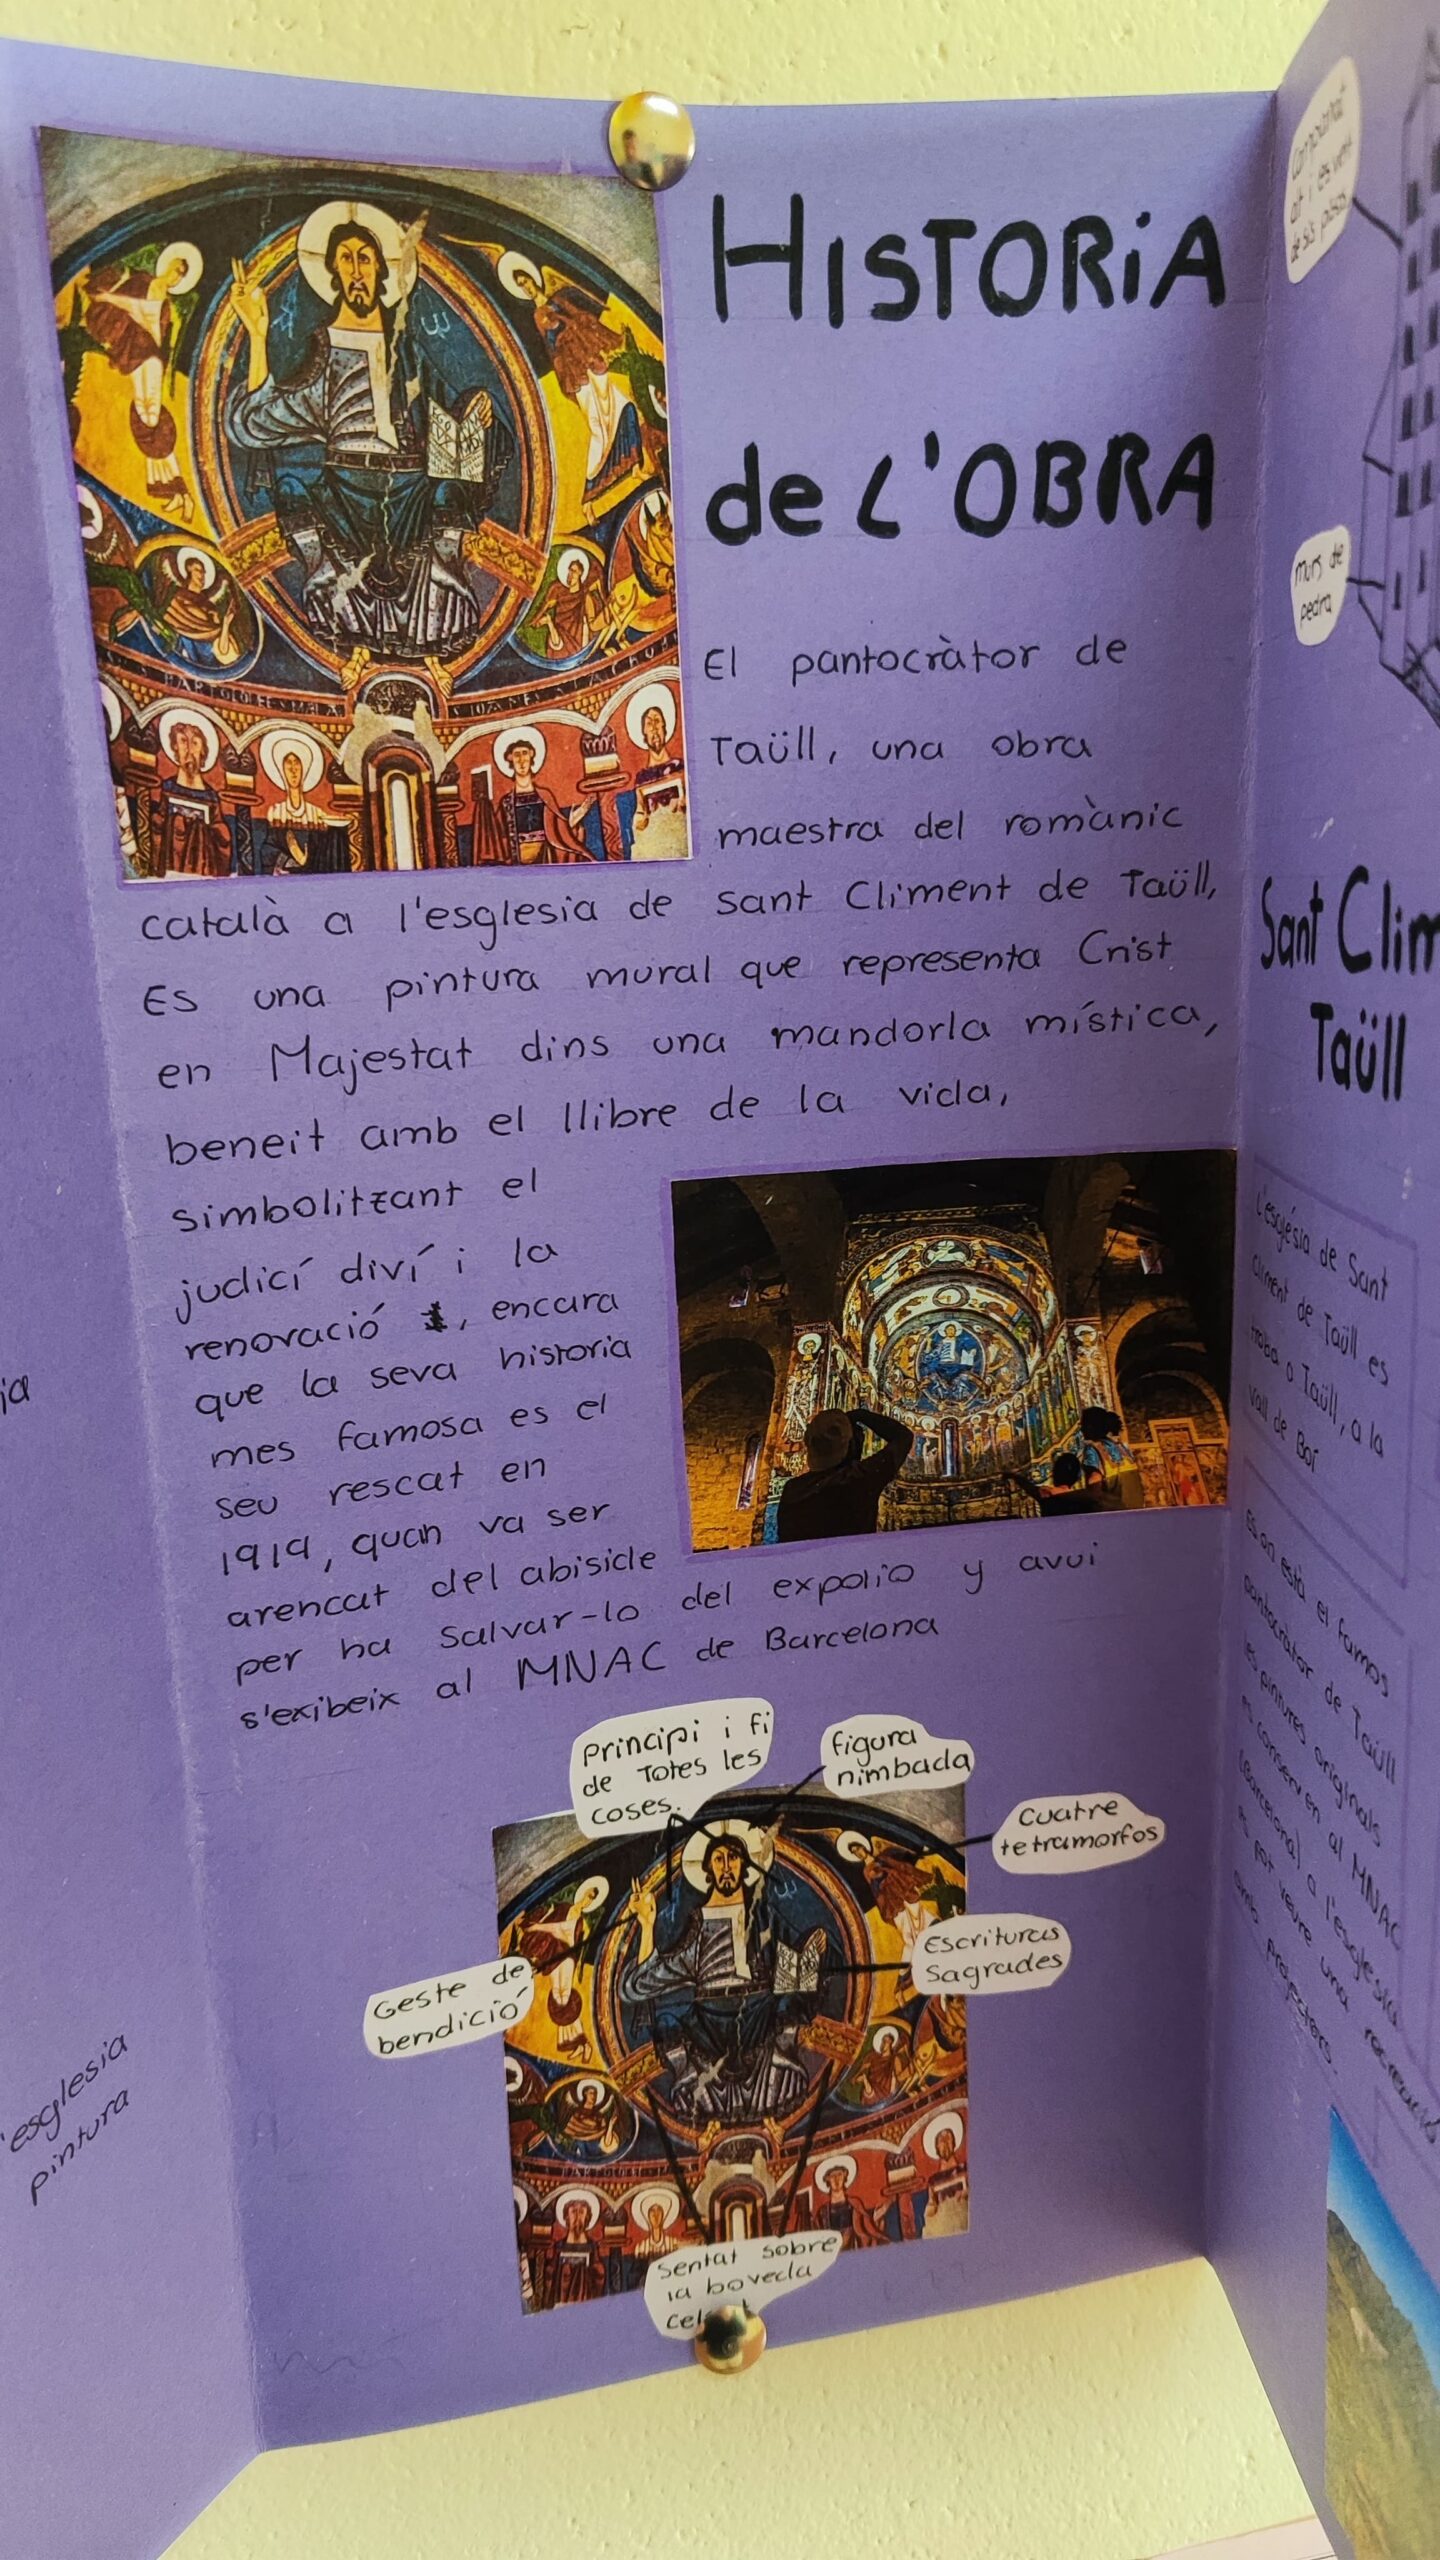 HISTORIA
de L'OBRA
El pantocràtor de
Taüll, una obra
maestra del romànic
català a l'esglesia de sant Climent de Taüll,
Es una pintura mural que representa Crist
en Majestat dins una mandorla mística,
beneit amb el llibre de la vida,
simbolitzant el
judicí diví i la
renovació , encara
que la seva historia
mes famosa es el
seu rescat en
1919, quan va ser
arencat del abisicle
per ha salvar-lo del expolio y avui
s'exibeix al MNAC de Barcelona
principi i fi
de Totes les
coses.
figura
nimbada
cuatre
tetramorfos
Escrituras
Sagrades
Geste de
bendició
sentat sobre
la boveda
ia
esglesia
pintura
alt i es veu
de sis pisos
murs de
pedra
Sant Clim
Taüll
L'església de Sant
Climent de Taüll es
troba a Taüll, a la
Vall de Boí
Es on està el famos
pantocràtor de Taüll
les pintures originals
es conserven al MNAC
(Barcelona) a l'esglesia
es pot veure una recreació
amb projectors.